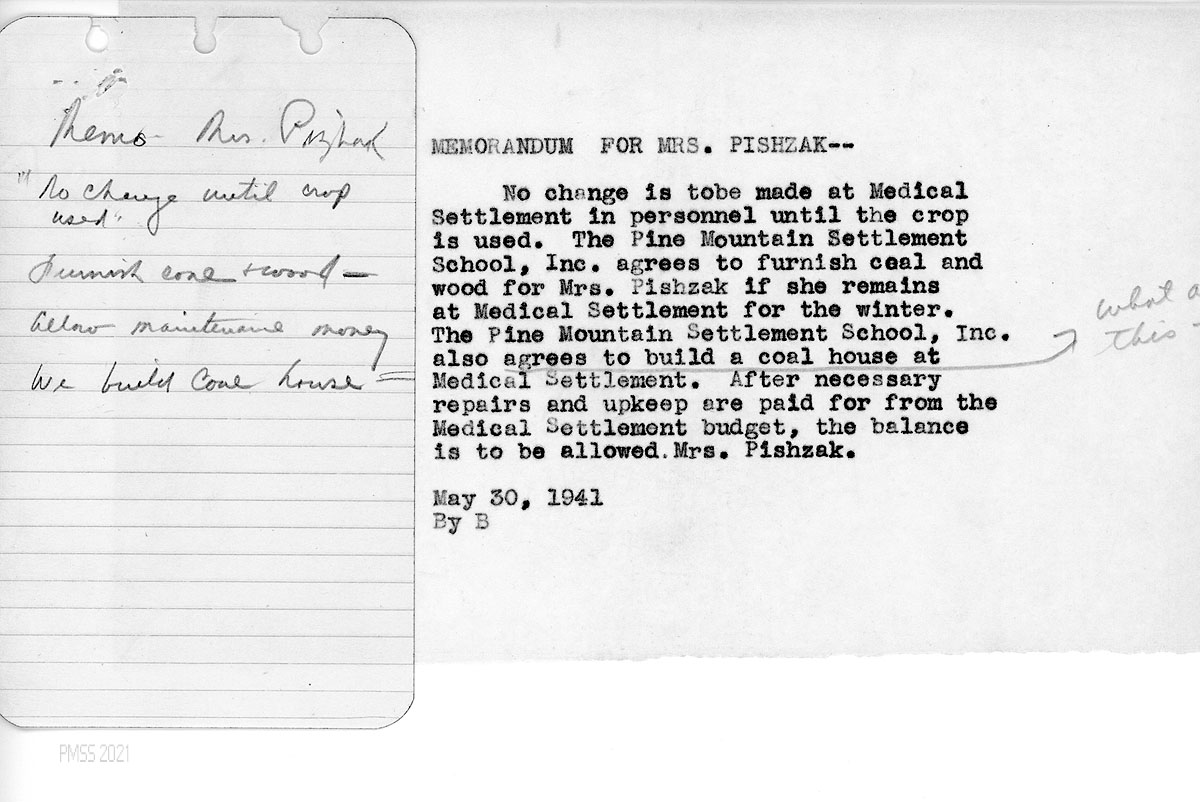 Memo Mrs. Pishzak
"No change until crop
used"
Furnish coal + wood —
Allow maintenance money
We build coal house =
MEMORANDUM FOR MRS. PISHZAK--
No change is tobe made at Medical
Settlement in personnel until the crop
is used. The Pine Mountain Settlement
School, Inc. agrees to furnish coal and
wood for Mrs. Pishzak if she remains
at Medical Settlement for the winter.
The Pine Mountain Settlement School, Inc.
also agrees to build a coal house at
Medical Settlement. After necessary
repairs and upkeep are paid for from the
Medical Settlement budget, the balance
is to be allowed.Mrs. Pishzak.
May 30, 1941
By B
what
this
PMSS 2021